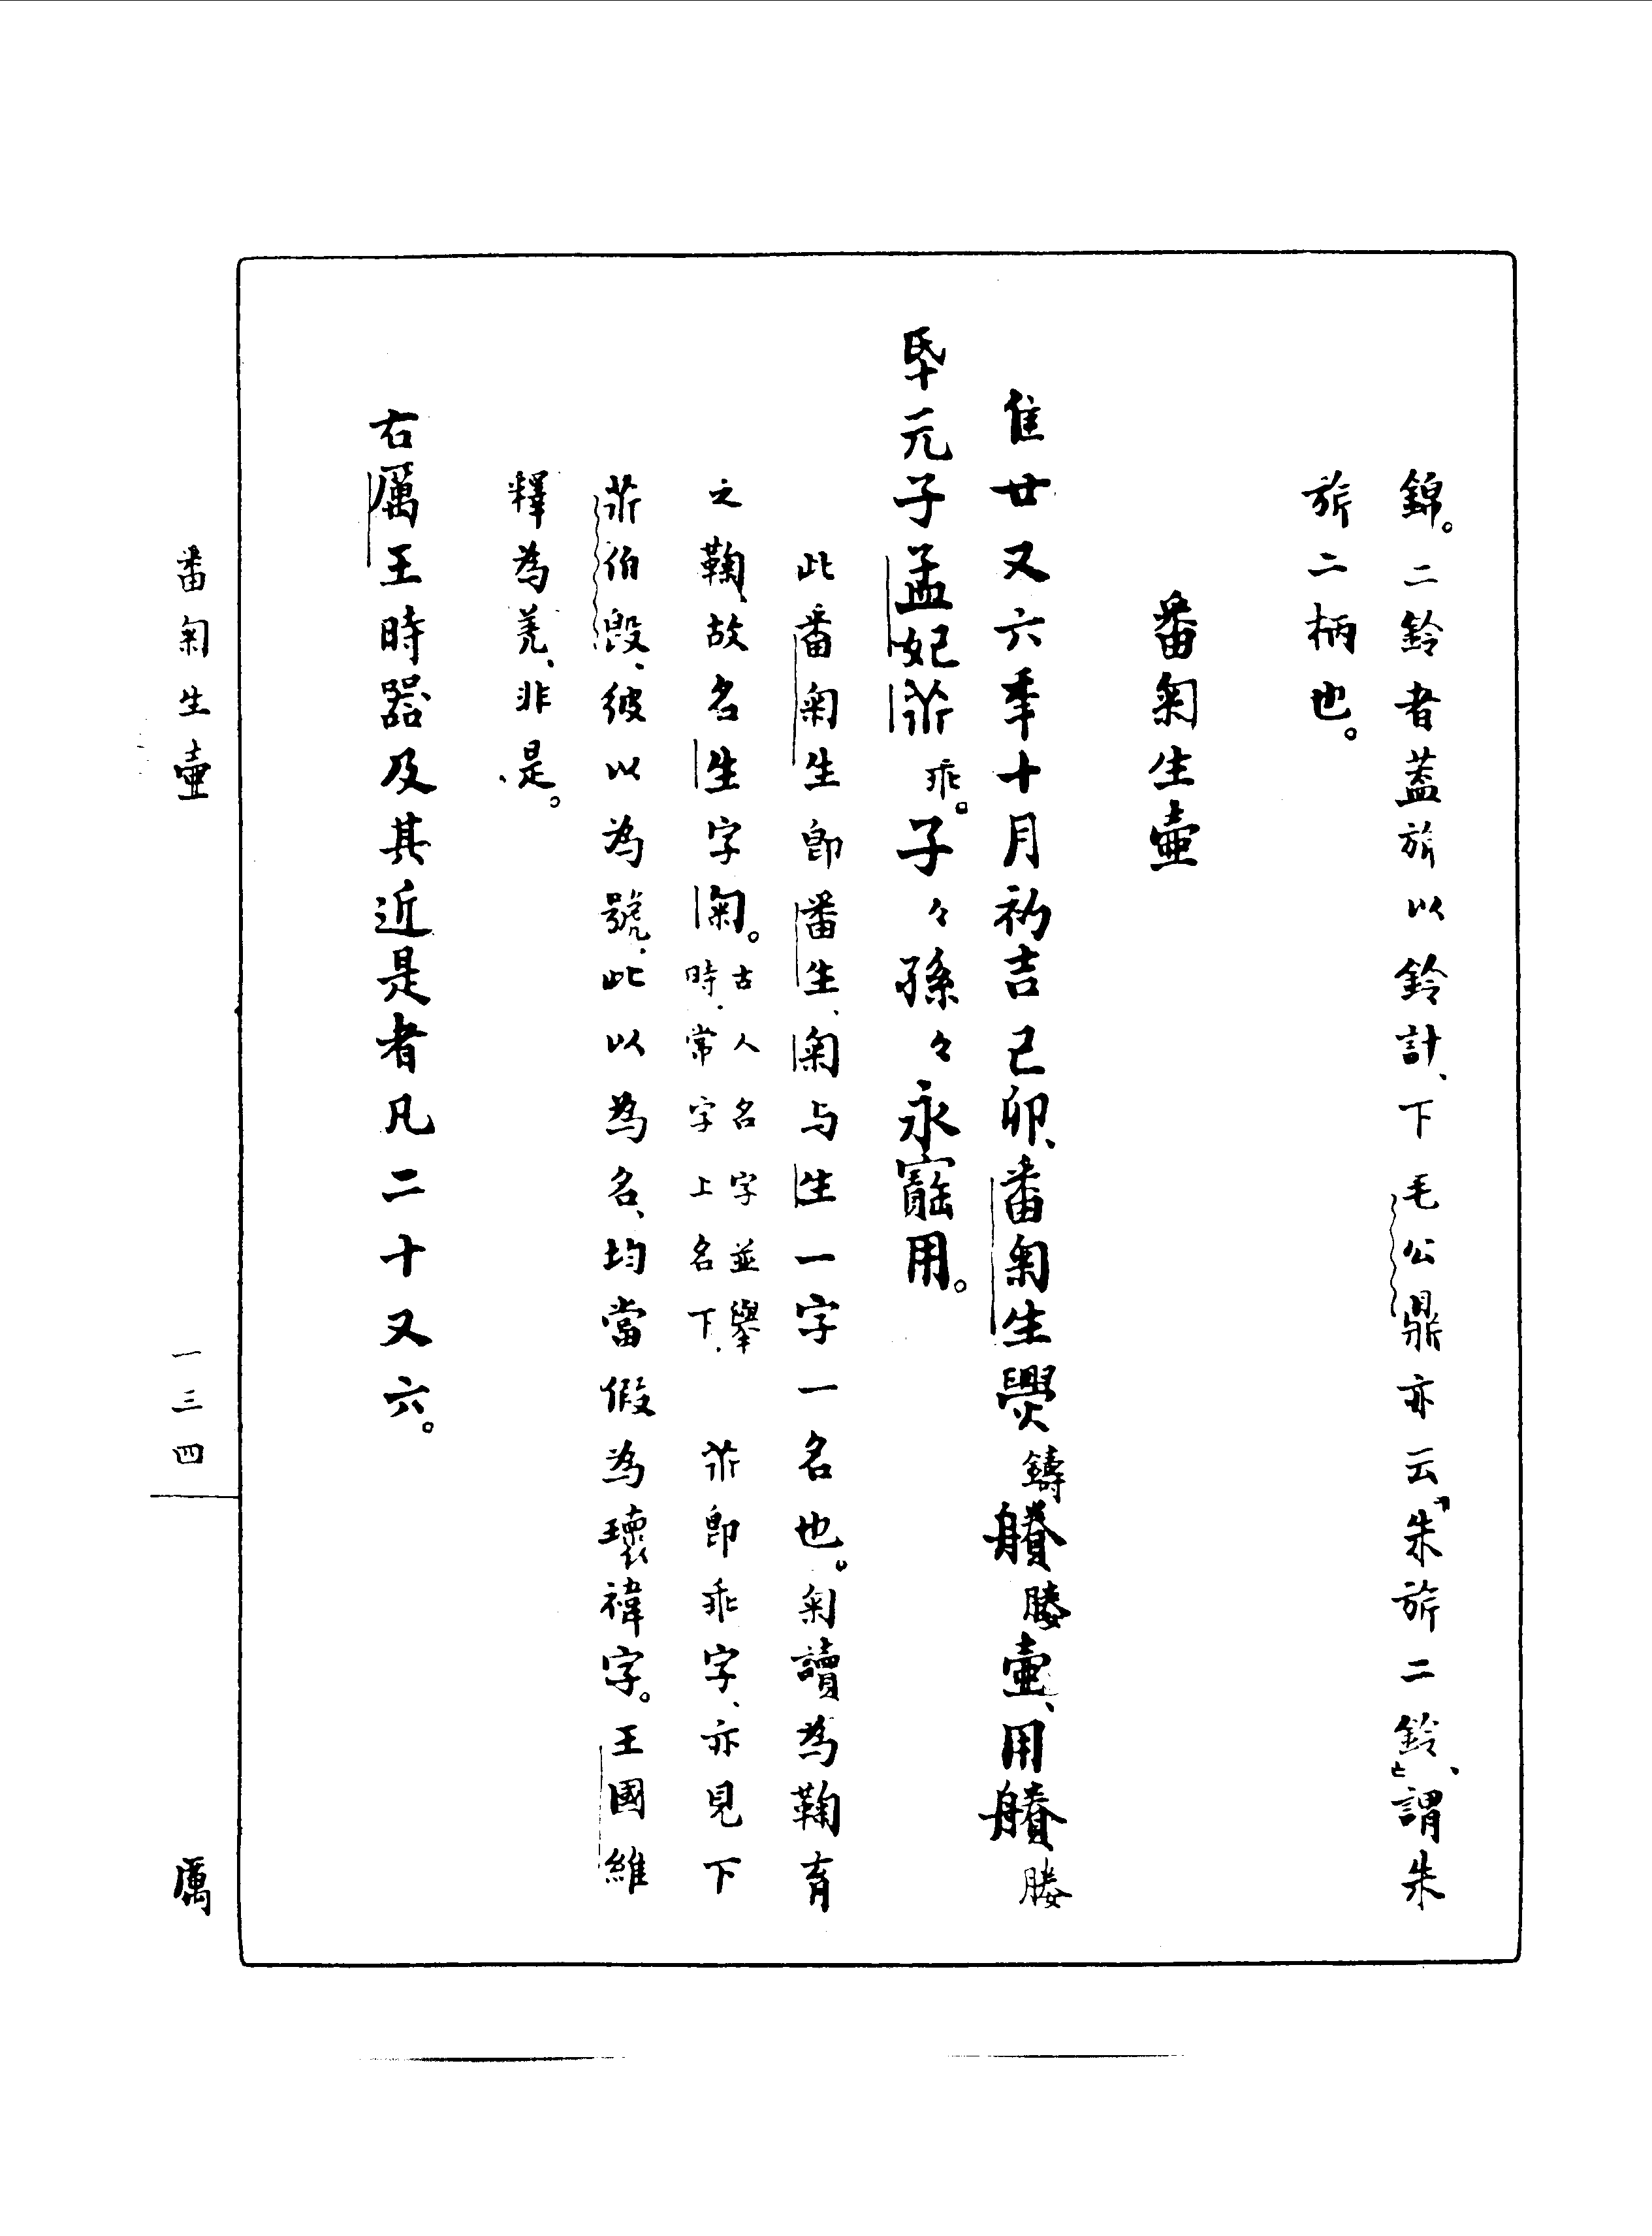 錦。二鈴者蓋旂以鈴計、下毛公鼎亦云「朱旂二鈴」、謂朱
旂二柄也。
番匊生壺
隹廿又六年十月初吉己卯、番匊生鑄賸媵壺、用賸媵
氒元子孟妃乖。子々孫々永寶用。
此番匊生即番生、匊与生一字一名也。匊讀為鞠育
之鞠、故名生字匊。古人名字並舉時、常字上名下。即乖字、亦見下
伯𣪘、彼以為號、此以為名、均當假為瓌禕字。王國維
釋為羌、非是。
右厲王時器及其近是者凡二十又六。
番匊生壺
一三四
厲